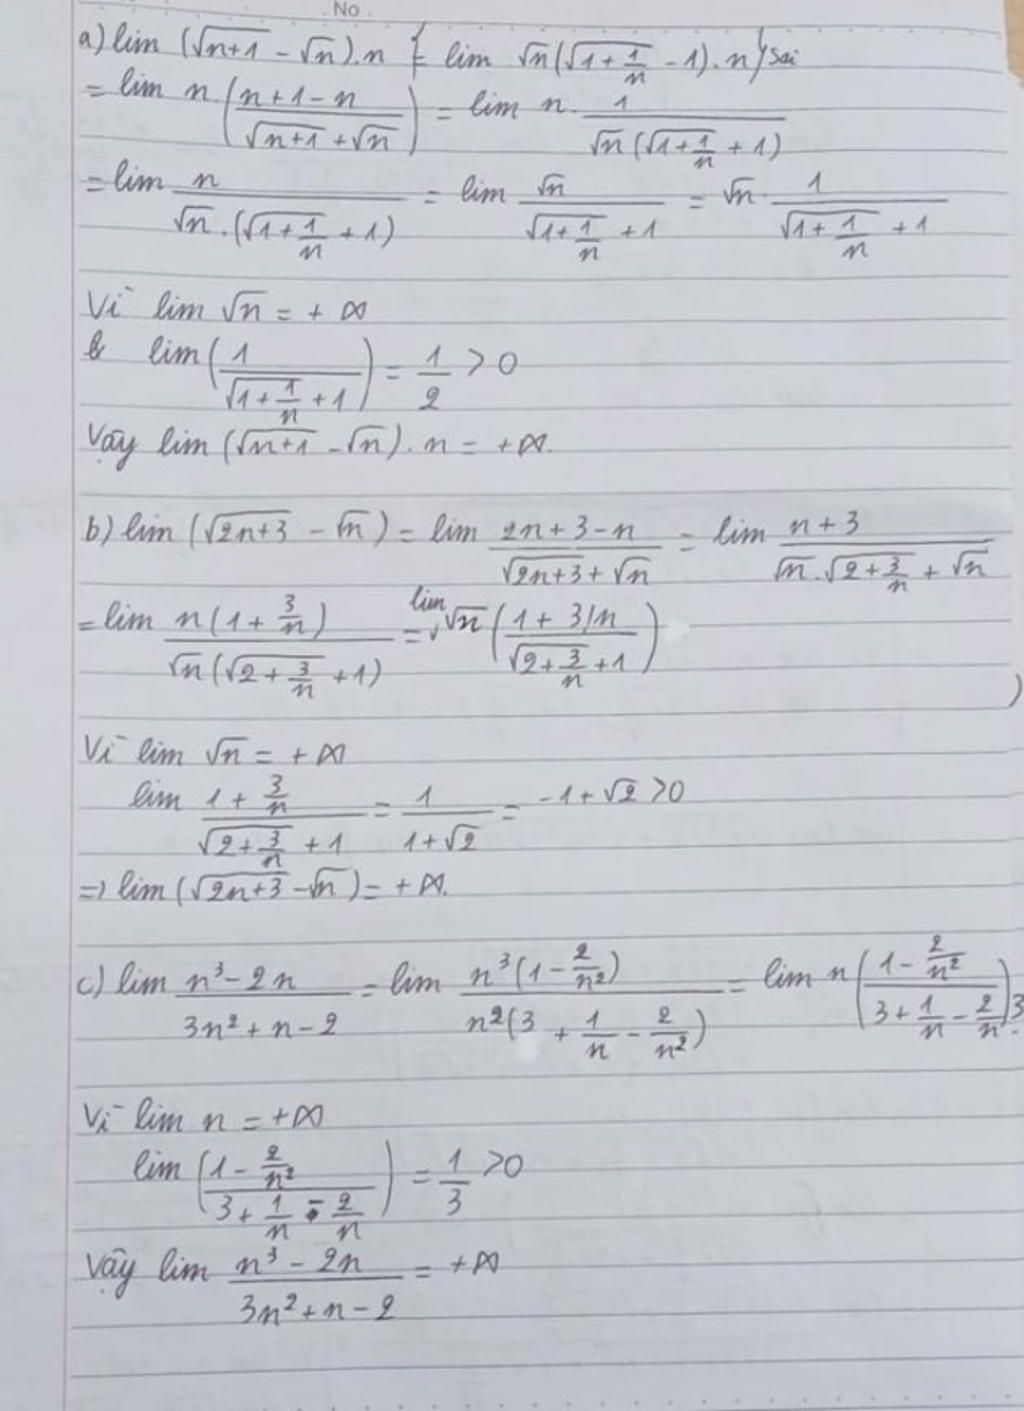 No.
a) lim (√(n+1) - √n).n {= lim √n(√(1 + 1/n) - 1).n} Sai
= lim n.((n+1-n)/(√(n+1) + √n)) = lim n. 1/(√n(√(1 + 1/n) + 1))
= lim n/(√n.(√(1 + 1/n) + 1)) = lim √n/(√(1 + 1/n) + 1) = √n. 1/(√(1 + 1/n) + 1)
Vì lim √n = + ∞
& lim(1/(√(1 + 1/n) + 1)) = 1/2 > 0
Vậy lim (√(n+1) - √n).n = +∞.
b) lim (√(2n+3) - √n) = lim (2n+3-n)/(√(2n+3) + √n) = lim (n+3)/(√n.√(2 + 3/n) + √n)
= lim n(1 + 3/n)/(√n(√(2 + 3/n) + 1)) = lim √n((1 + 3/n)/(√(2 + 3/n) + 1))
)
Vì lim √n = + ∞
lim (1 + 3/n)/(√(2 + 3/n) + 1) = 1/(1+√2) = -1+√2 >0
=> lim (√(2n+3) - √n) = + ∞.
c) lim (n³-2n)/(3n²+n-2) = lim n³(1 - 2/n²)/(n²(3 + 1/n - 2/n²)) = lim n((1 - 2/n²)/(3 + 1/n - 2/n²))
Vì lim n = +∞
lim ((1 - 2/n²)/(3 + 1/n - 2/n)) = 1/3 >0
Vậy lim (n³ - 2n)/(3n²+n-2) = +∞